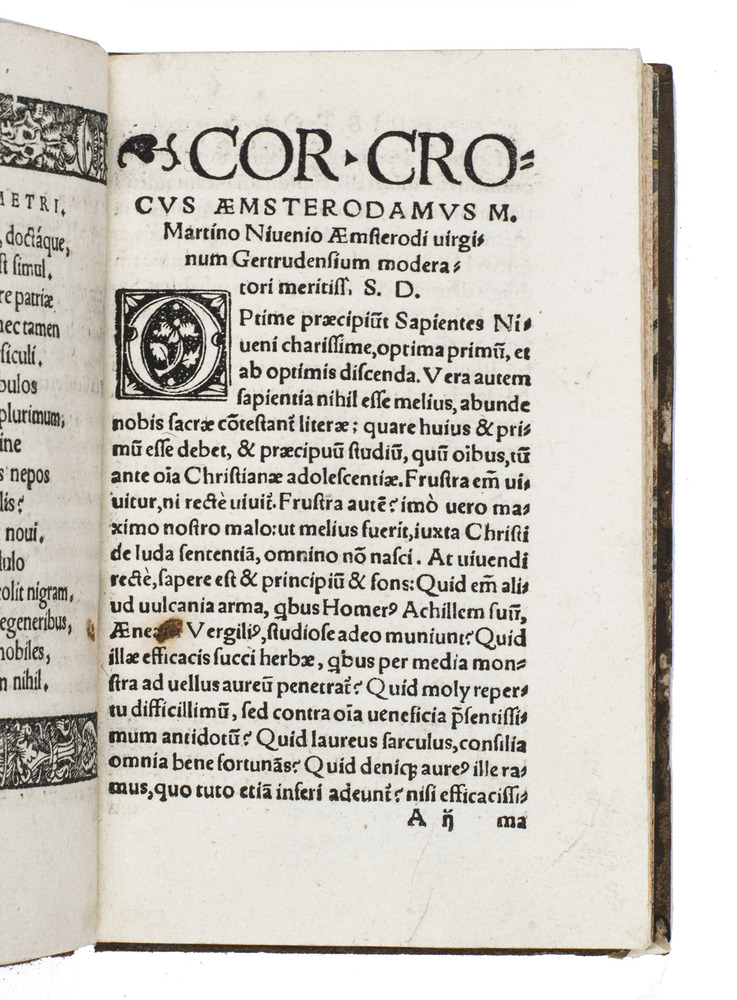 METRI.
, doctáque,
st simul.
re patriæ
nec tamen
siculi.
bulos
plurimum,
ine
s nepos
lis?
noui.
dulo
colit nigram,
egeneribus,
nobiles,
n nihil.
COR CRO=
CVS ÆMSTERODAMVS M.
Martino Niuenio Æmsterodi uirgi=
num Gertrudensium modera=
tori meritiſſ. S. D.
OPtime præcipiūt Sapientes Ni=
ueni chariſſime, optima primū, et
ab optimis diſcenda. Vera autem
ſapientia nihil eſſe melius, abunde
nobis ſacræ cōteſtant̄ literæ: quare huius & pri=
mū eſſe debet, & præcipuū ſtudiū, quū oībus, tū
ante oīa Chriſtianæ adoleſcentiæ. Fruſtra em̄ ui=
uitur, ni rectè uiuit̄. Fruſtra autē? imò uero ma=
ximo noſtro malo: ut melius fuerit, iuxta Chriſti
de Iuda ſententiā, omnino nō naſci. At uiuendi
rectè, ſapere eſt & principiū & fons: Quid em̄ ali=
ud uulcania arma, qͥbus Homerꝰ Achillem ſuū,
Æneam Vergiliꝰ, ſtudioſe adeo muniunt? Quid
illæ efficacis ſucci herbæ, qͥbus per media mon=
ſtra ad uellus aureū penetrat̄? Quid moly reper=
tu difficillimū, ſed contra oīa ueneficia p̄ſentiſſi=
mum antidotū? Quid laureus ſarculus, conſilia
omnia bene fortunās? Quid deniqꝫ aureꝰ ille ra=
mus, quo tuto etiā inferi adeunt̄? niſi efficaciſſi=
A ij ma